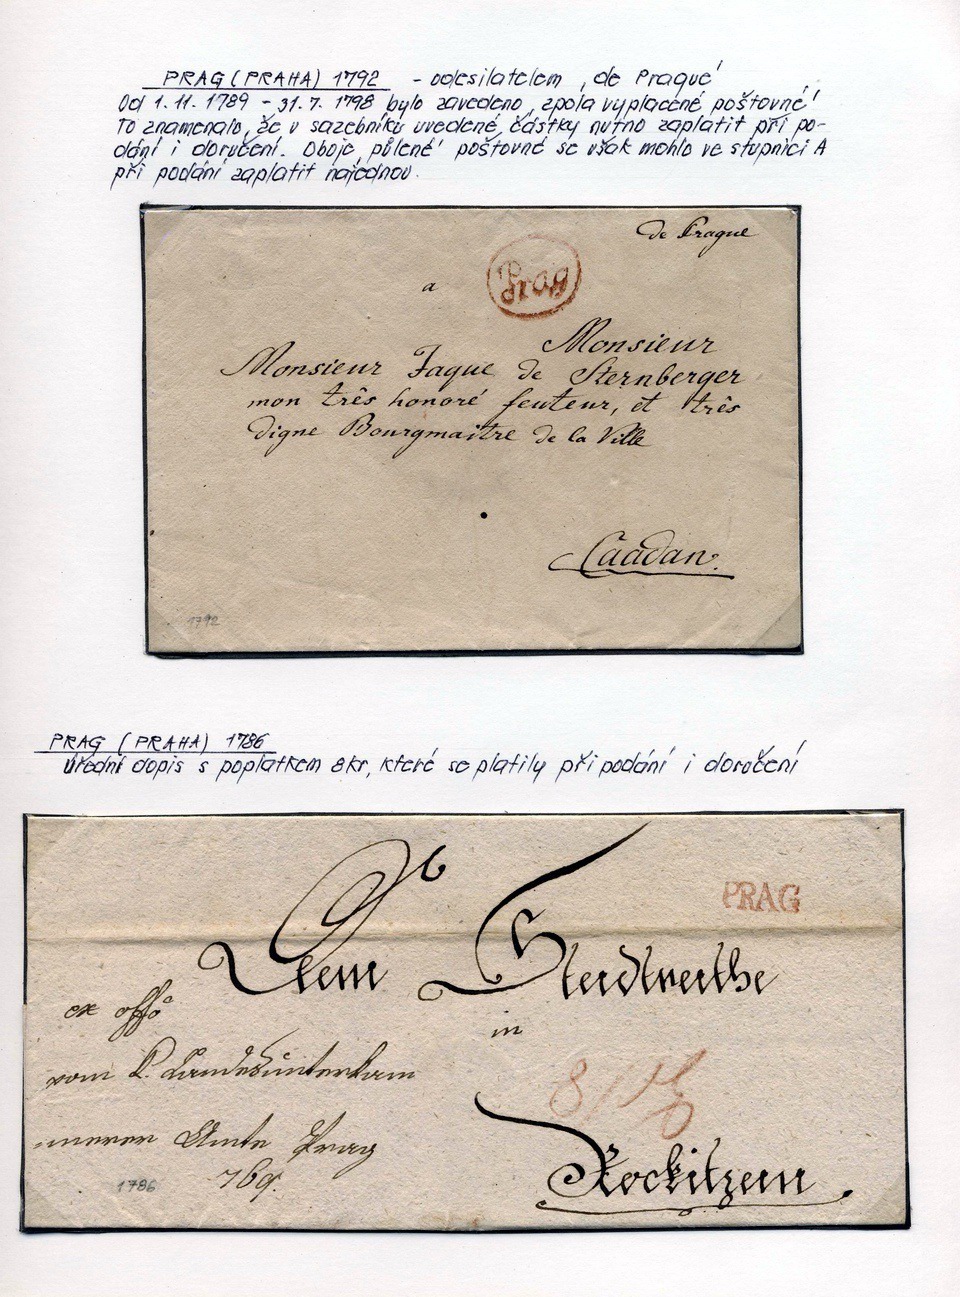 PRAG (PRAHA) 1792 - odesilatelem ‚de Prague'
Od 1.11.1789 - 31.7.1798 bylo zavedeno ‚zpola vyplacené poštovné'
To znamenalo, že v sazebníku uvedené částky nutno zaplatit při po-
dání i doručení. Oboje ‚půlené' poštovné se však mohlo ve stupnici A
při podání zaplatit najednou.
de Prague
Prag
a
Monsieur
Monsieur Jaque de Sternberger
mon três honoré feuteur, et três
digne Bourgmaitre de la Ville
Caadan.
1792
PRAG (PRAHA) 1786
úřední dopis s poplatkem 8kr, které se platily při podání i doručení
PRAG
Dem Stadtrathe
ex offo
in
vom K. Landesunterkam
8
merer Amte Prag
Rockitzan
1786